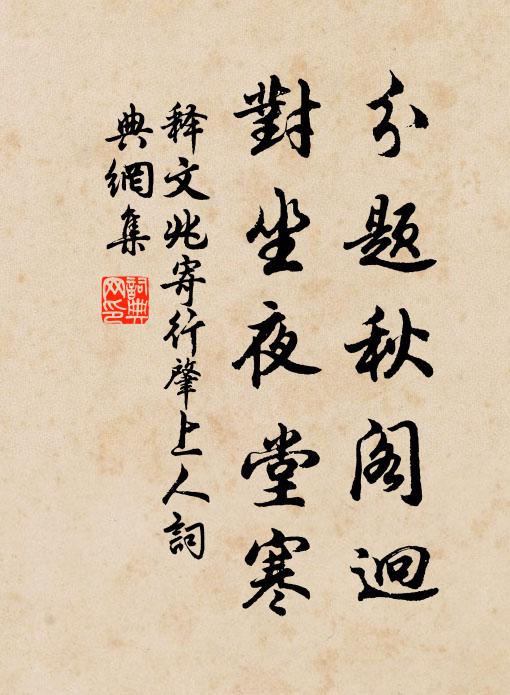 分题秋阁迥
對坐夜堂寒
释文兆寄行肇上人詞
典網集
詞典
网印